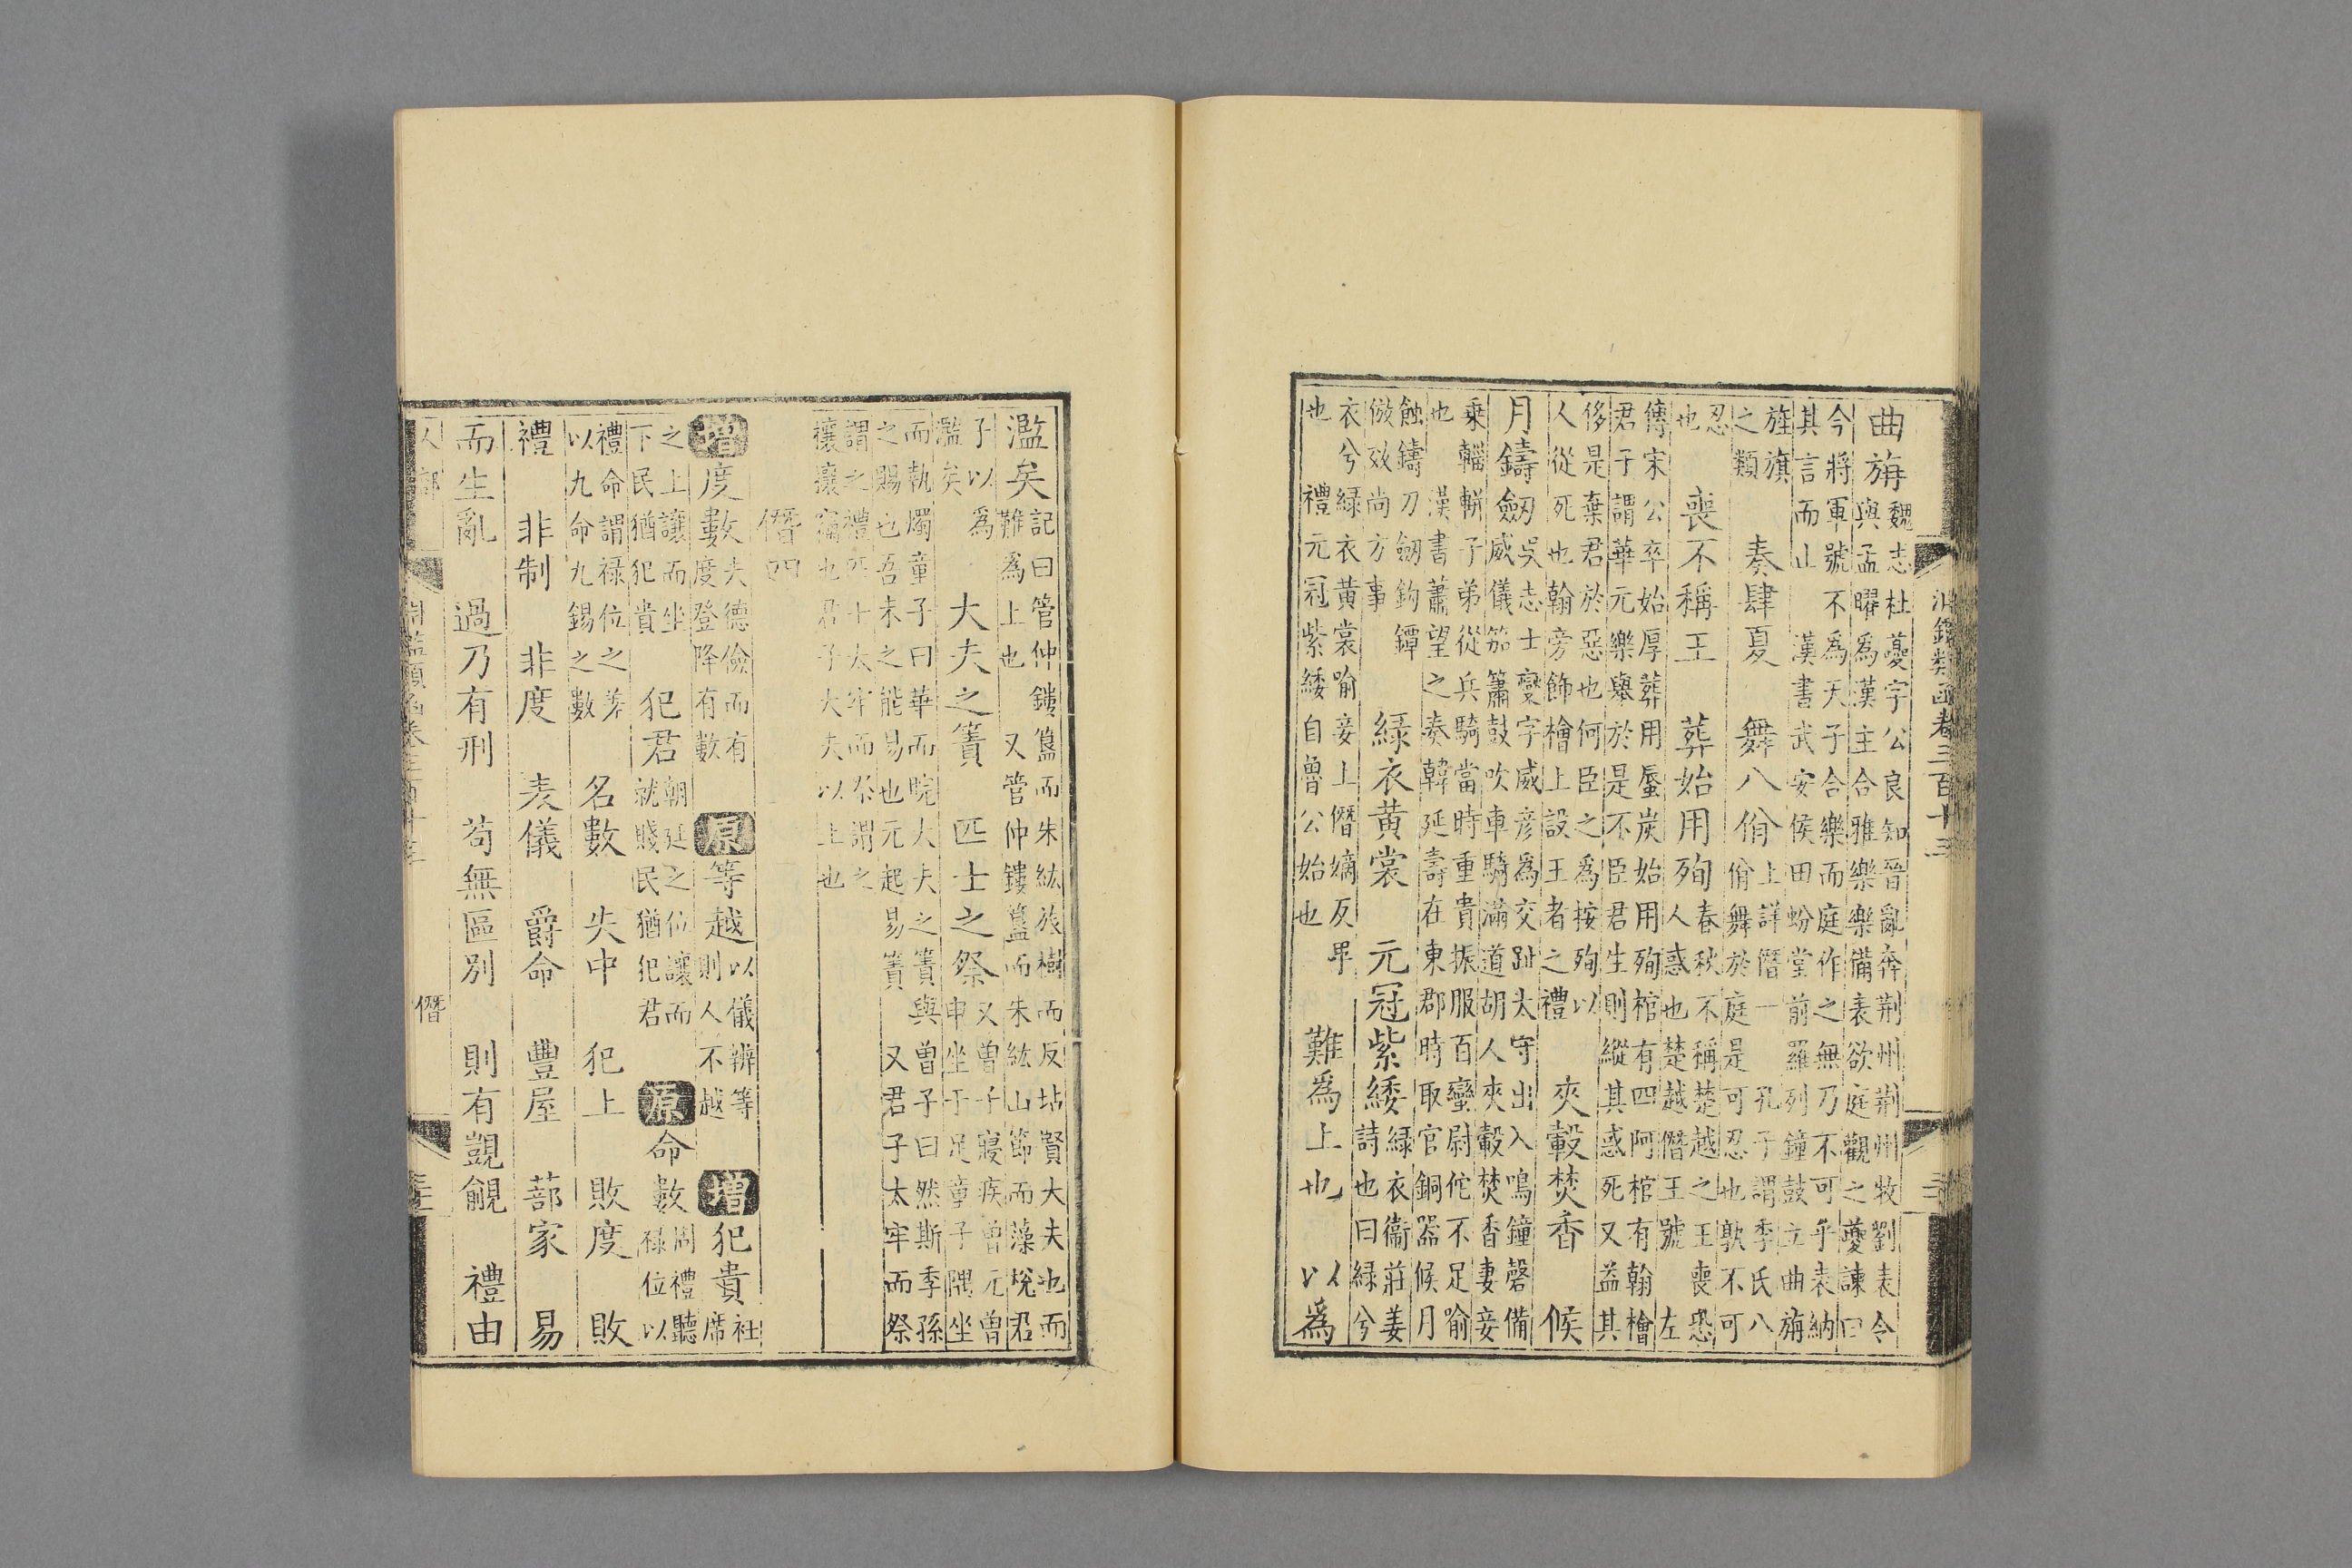 淵鑑類函卷三百十三 二
曲旃 魏志杜夔字公良知晉亂奔荆州荆州牧劉表令
與孟曜為漢主合雅樂樂備表欲庭觀之夔諫曰
今將軍號不為天子合樂而庭作之無乃不可乎表納
其言而止 漢書武安侯田蚡堂前羅列鐘鼓立曲旃
旌旗
之類 奏肆夏 舞八佾 上詳僭一 孔子謂季氏八
佾舞於庭是可忍也孰不可
忍
也 喪不稱王 葬始用殉 春秋不稱楚越之王喪恐
人惑也楚越僭王號 左
傳宋公卒始厚葬用蜃炭始用殉棺有四阿棺有翰檜
君子謂華元樂舉於是不臣君生則縱其惑死又益其
侈是棄君於惡也何臣之為按殉以
人從死也翰旁飾檜上設王者之禮 夾轂焚香 候
月鑄劒 吳志士燮字威彦為交趾太守出入鳴鐘磬備
威儀笳簫鼓吹車騎滿道胡人夾轂焚香妻妾
乗輜軿子弟從兵騎當時重貴振服百蠻尉佗不足喻
也 漢書蕭望之奏韓延壽在東郡時取官銅器候月
蝕鑄刀劒鈎鐔
倣效尚方事 綠衣黃裳 元冠紫緌 綠衣衞莊姜
詩也曰緑兮
衣兮綠衣黃裳喻妾上僭嫡反卑
也 禮元冠紫緌自魯公始也 難為上也 以為
濫矣 記曰管仲鏤簋而朱紘旅樹而反坫賢大夫也而
難為上也 又管仲鏤簋而朱紘山節而藻梲君
子以為
濫矣 大夫之簀 匹士之祭 又曽子寢疾曽元曽
申坐于足童子隅坐
而執燭童子曰華而睆大夫之簀與曽子曰然斯季孫
之賜也吾未之能易也元起易簀 又君子太牢而祭
謂之禮匹士太牢而祭謂之
攘攘竊也君子大夫以上也
僭四
增 度數 夫德儉而有
度登降有數 原 等越 以儀辨等
則人不越 增 犯貴 社
席
之上讓而坐
下民猶犯貴 犯君 朝廷之位讓而
就賤民猶犯君 原 命數 周禮聽
祿位以
禮命謂祿位之差
以九命九錫之數 名數 失中 犯上 敗度 敗
禮 非制 非度 表儀 爵命 豐屋 蔀家 易
而生亂 過乃有刑 苟無區別 則有覬覦 禮由
人部 淵鑑類函卷三百十三 僭 三